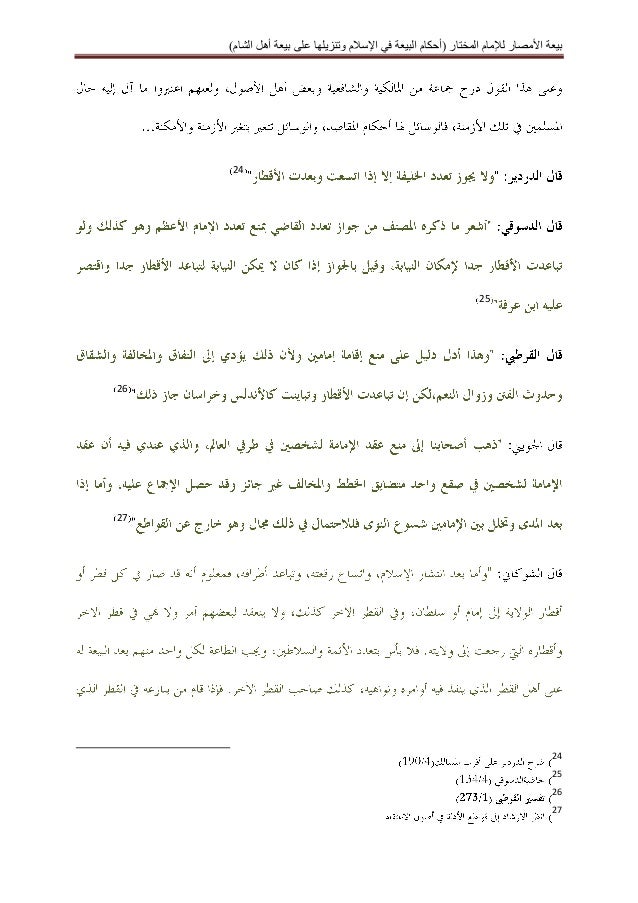 بيعة الأمصار للإمام المختار (أحكام البيعة في الإسلام وتنزيلها على بيعة أهل الشام)
وعلى هذا القول درج جماعة من المالكية والشافعية وبعض أهل الأصول، ولعلهم اعتبروا ما آل إليه حال
المسلمين في تلك الأزمنة، فالوسائل لها أحكام المقاصد، والوسائل تتغير بتغير الأزمنة والأمكنة...
قال الدردير: "ولا يجوز تعدد الخليفة إلا إذا اتسعت وبعدت الأقطار"(24)
قال الدسوقي: "أشعر ما ذكره المصنف من جواز تعدد القاضي بمنع تعدد الإمام الأعظم وهو كذلك ولو
تباعدت الأقطار جدا لإمكان النيابة، وقيل بالجواز إذا كان لا يمكن النيابة لتباعد الأقطار جدا واقتصر
عليه ابن عرفة"(25)
قال القرطبي: "وهذا أدل دليل على منع إقامة إمامين ولأن ذلك يؤدي إلى النفاق والمخالفة والشقاق
وحدوث الفتن وزوال النعم،لكن إن تباعدت الأقطار وتباينت كالأندلس وخراسان جاز ذلك"(26)
قال الجويني: "ذهب أصحابنا إلى منع عقد الإمامة لشخصين في طرفي العالم، والذي عندي فيه أن عقد
الإمامة لشخصين في صقع واحد متضايق الخطط والمخالف غير جائز وقد حصل الإجماع عليه. وأما إذا
بعد المدى وتخلل بين الإمامين شسوع النوى فللاحتمال في ذلك مجال وهو خارج عن القواطع"(27)
قال الشوكاني: "وأما بعد انتشار الإسلام، واتساع رقعته، وتباعد أطرافه، فمعلوم أنه قد صار في كل قطر أو
أقطار الولاية إلى إمام أو سلطان، وفي القطر الاخر كذلك، ولا ينعقد لبعضهم أمر ولا نهي في قطر الاخر
وأقطاره التي رجعت إلى ولايته. فلا بأس بتعدد الأئمة والسلاطين، ويجب الطاعة لكل واحد منهم بعد البيعة له
على أهل القطر الذي ينفذ فيه أوامره ونواهيه، كذلك صاحب القطر الاخر. فإذا قام من ينازعه في القطر الذي
24) شرح الدردير على أقرب المسالك(190/4)
25) حاشيةالدسوقي (134/4)
26) تفسير القرطبي (273/1)
27) انظر الإرشاد إلى قواطع الأدلة في أصول الاعتقاد